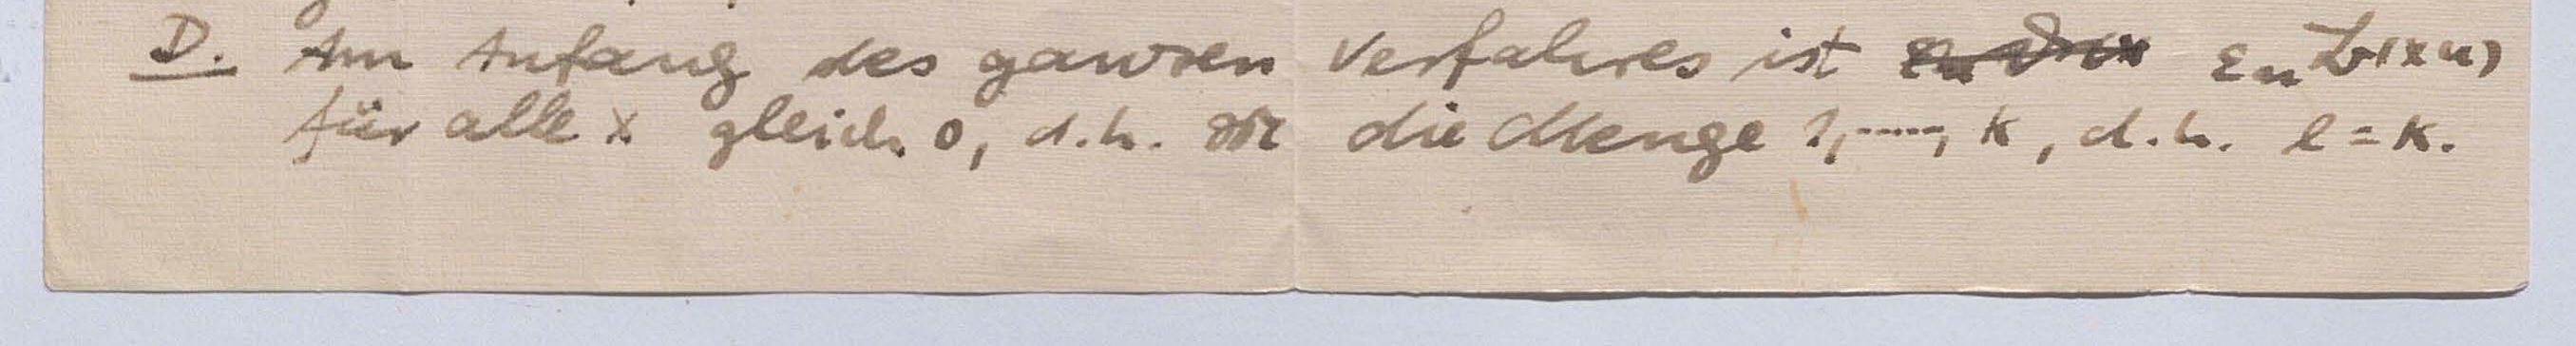 D. Am Anfang des ganzen Verfahres ist Σu b(xu)
für alle x gleich 0, d.h. die Menge 1,....., k, d.h. l = k.